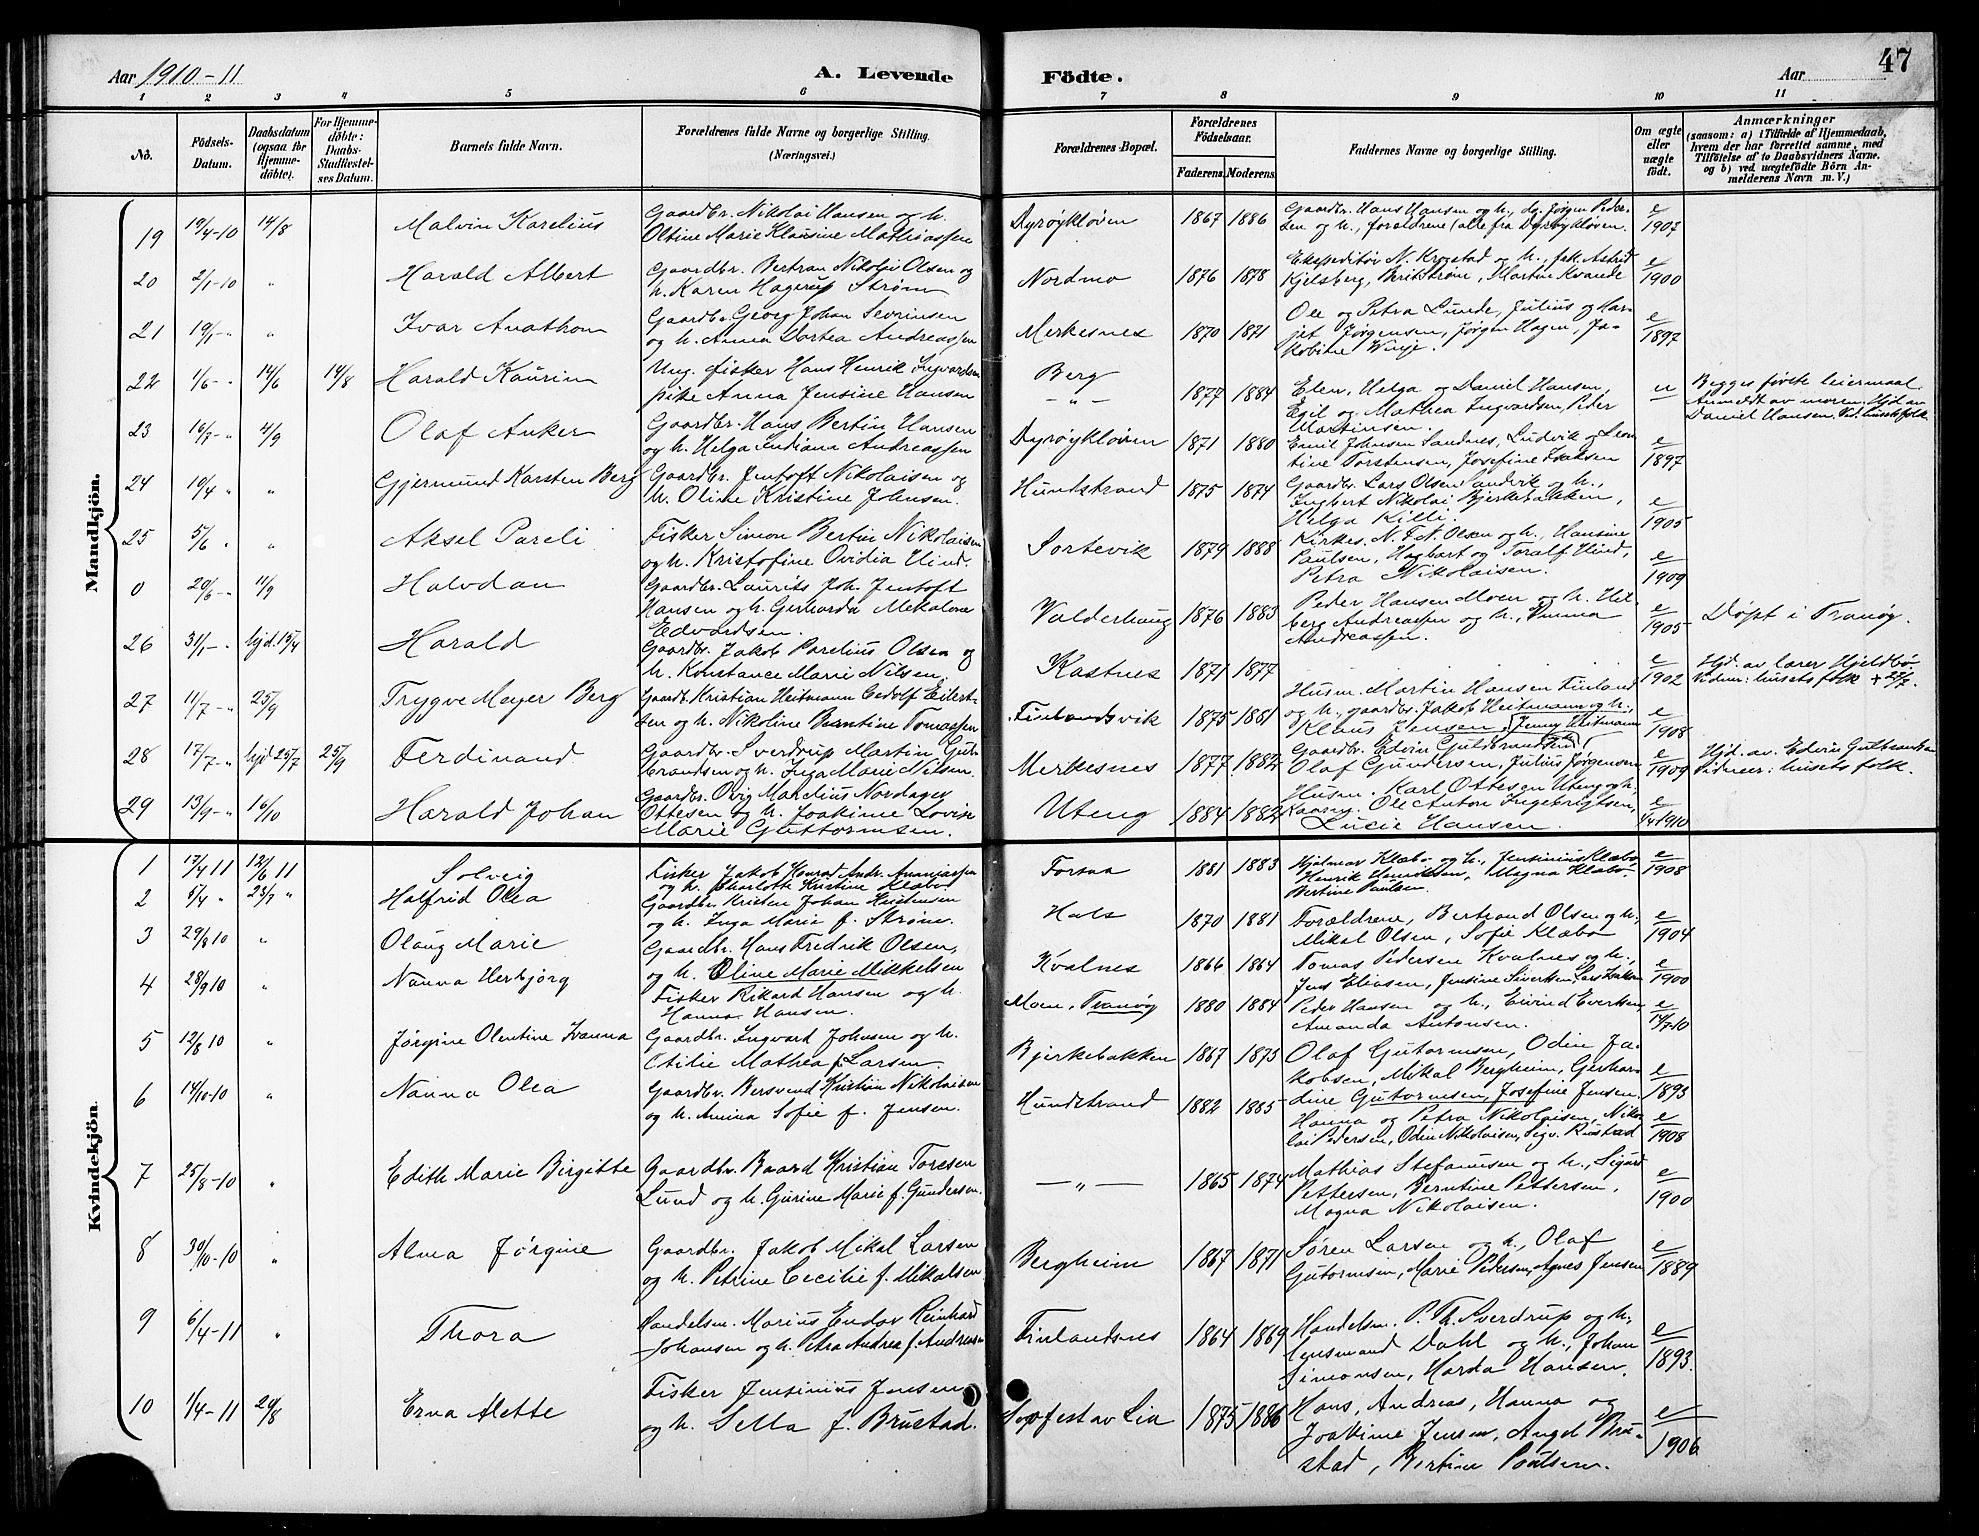 Aar 1910-11
A. Levende
Födte.
Aar
47
1 2 3 4 5 6 7 8 9 10 11
No.
Födsels-Datum.
Daabsdatum (ogsaa for Hjemme-döbte).
For Hjemme-döbte: Daabs-Stadfæstelses Datum.
Barnets fulde Navn.
Forældrenes fulde Navne og borgerlige Stilling.
(Næringsvei.)
Forældrenes Bopæl.
Forældrenes Födselsaar.
Faderens. Moderens.
Faddernes Navne og borgerlige Stilling.
Om ægte eller uægte födt.
Anmærkninger
(saasom: a) i Tilfælde af Hjemmedaab, hvem der har forrettet samme, med Tilföielse af to Daabsvidners Navne. og b) ved uægtefödte Börn Anmelderens Navn m. V.)
Mandkjön.
19 19/4-10 14/8 Malvin Karelius
Gaardbr. Nikolai Hansen og h.
Oltine Marie Klausine Mathiassen
Dyrøykløven 1867 1886
Gaardbr. Hans Hansen og h., Jørgen Peder-
sen og h., forældrene (alle fra Dyrøykløven.
e/1907
20 2/1-10 " Harald Albert
Gaardbr. Bertran Nikolai Olsen og
h. Karen Hagerup Strøm
Nordmo 1876 1878
Ekspeditör N. Krogstad og h., frk. Astrid
Kjelsberg, Berit Strøm, Martin Kvande
e/1900
21 19/1-" " Ivar Anathon
Gaardbr. Georg Johan Sevrinsen
og h. Anna Dortea Andreassen
Merkesnes 1870 1871
Ole og Petra Lunde, Julius og Mar-
jet Jørgensen, Jørgen Hagen, Ja-
kobine Winje.
e/1897
22 1/6-" 14/6 14/8 Harald Kaurin
Ung. fisker Hans Henrik Ingvardsen
pike Anna Jensine Hansen
Berg
-"- 1877 1884
Elen, Helga og Daniel Hansen,
Egil og Mathea Ingvardsen, Peder
Martinsen.
u
Begges første leiermaal
Anmeldt av moren. Hjd. av
Daniel Hansen. Vid. husets folk
23 16/7-" 4/9 Olaf Anker
Gaardbr. Hans Bertin Hansen
og h. Helga Indiana Andreassen
Dyrøykløven 1871 1880
Emil Johnsen Sandnes, Ludvik og Leon-
tine Torstensen, Josefine Isaksen
e/1897
24 10/4 " " Gjermund Karsten Berg
Gaardbr. Jentoft Nikolaisen og
h. Oline Kristine Johnsen.
Hundstrand 1875 1874
Gaardbr. Lars Olsen Sandvik og h.,
Ingbert Nikolai Bjerkebakken,
Helga Killi.
e/1905
25 5/6 " " Aksel Pareli
Fisker Simon Bertin Nikolaisen
og h. Kristofine Ovidia Hind.
Sortevik 1879 1888
Kirkes. N. F. A. Olsen og h., Hansine
Paulsen, Hagbart og Toralf Hind,
Petra Nikolaisen.
e/1909
0 20/6-" 11/9 Halvdan
Gaardbr. Laurits Joh. Jentoft
Hansen og h. Gerharda Mekalone
Edvardsen.
Valderhaug 1876 1883
Peder Hansen Moen og h. Hil-
berg Andreassen og h., Emma
Andreassen.
e/1905
Døpt i Tranøy.
26 31/1-" hjd. 15/4 Harald
Gaardbr. Jakob Parelius Olsen og
h. Konstance Marie Nilsen
Kastnes 1871 1877
e/1902
Hjd. av lærer Hjeldbø.
Vidner: husets folk + 27/7.
27 11/7-" 25/9 Trygve Meyer Berg
Gaardb. Kristian Heitmann Cedolf Eilert-
sen og h. Nikoline Berntine Tomassen
Finlandsvik 1875 1881
Husm. Martin Hansen Finland
og h., gaardbr. Jakob Heitmann og h.
Klaus Jensen, Jenny Heitmann
e/1908
28 17/7-" hjd 25/7 25/9 Ferdinand
Gaardbr. Sverdrup Martin Gut-
brandsen og h. Inga Marie Nilsen.
Merkesnes 1877 1882
Gaardbr. Edvin Guldbrandsen
Olaf Gundersen, Julius Jørgensen
e/1909
Hjd. av Edvin Gulbrandsen
Vidner: husets folk.
29 13/9-" 16/10 Harald Johan
Gaardbr. Ovig Mandius Nordager
Ottesen og h. Joakime Lovise
Marie Guttormsen.
Uteng 1884 1882
Husm. Karl Ottesen Uteng og h.,
Ole Anton Ingebrigtsen,
Lucie Hansen.
e/1910
Kvindekjön.
1 17/4 11 12/6 11 Solveig
Fisker Jakob Konrad Andr. Ananiassen
og h. Charlotte Kristine Klæbo
Forsaa 1881 1883
Hjalmar Klæbo og h., Jensinius Klæbo
Henrik Henriksen, Magna Klæbo,
Bertine Paulsen.
e/1908
2 5/4 " 23/7 " Halfrid Olea
Gaardbr. Kristen Johan Kristensen
og h. Inga Marie f. Strøm.
Hals 1870 1881
Forældrene, Bertrand Olsen og h.
Mikal Olsen, Sofie Klæbo
e/1904
3 29/8 10 " Olaug Marie
Gaardbr. Hans Fredrik Olsen,
og h. Oline Marie Mikkelsen
Kvalnes 1866 1864
Tomas Pedersen Kvalnes og h.,
Jens Eliasen, Jensine Sivertsen, Lars Isaksen
e/1900
4 28/9 10 " Nanna Herbjörg
Fisker Rikard Hansen og h.
Hanna Hansen.
Moen, Tranøy 1880 1884
Peder Hansen og h., Eivind Evertsen,
Amanda Antonsen.
e/14/7-10
5 12/8 10 " Jørgine Olentine Ivanna
Gaardbr. Ingvard Johnsen og h.
Cecilie Mathea f. Larsen
Bjerkebakken 1867 1873
Olaf Gutormsen, Odin Ja-
kobsen, Mikal Bergheim, Gerhar-
dine Gutormsen, Josefine Jensen.
e/1893
6 14/10-10 " Nanna Olea
Gaardbr. Bersvend Kristian Nikolaisen
og h. Amina Sofie f. Jensen.
Hundstrand 1882 1885
Hanna og Petra Nikolaisen, Niko-
lai Pedersen, Odin Nikolaisen, Sigv. Rustad
e/1908
7 25/8-10 " Edith Marie Birgitte
Gaardbr. Baard Kristian Toresen
Lund og h. Gurine Marie f. Gundersen.
-"- 1865 1874
Mathias Stefanusen og h., Sigurd
Pettersen, Berntine Pettersen,
Magna Nikolaisen.
e/1900
8 30/10-10 " Alma Jørgine
Gaardbr. Jakob Mikal Larsen
og h. Petrine Cecilie f. Mikalsen
Bergheim 1867 1871
Søren Larsen og h., Olaf
Gutormsen, Marie Pedersen, Agnes Jensen
e/1889
9 6/4-11 " Thora
Handelsm. Marius Endor Reinhard
Johansen og h. Petra Andrea f. Andresen
Finlandsnes 1864 1869
Handelsm. P. Th. Sverdrup og h.,
lensmand Dahl og h., Johan
Simonsen, Harda Hansen.
e/1893.
10 1/4-11 20/8 Erna Alette
Fisker Jensinius Jensen
og h. Sella f. Brustad.
Sopfest av Lia 1875 1886
Hans, Andreas, Hanna og
Joakime Jensen, Angel Bru-
stad, Bertine Poulsen.
e/1906